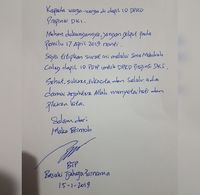 Kepada warga-warga di dapil 10 DPRD
Propinsi DKI.
Mohon dukungannya, jangan golput pada
Pemilu 17 April 2019 nanti.
Saya titipkan surat ini melalui Sma Mahatah
Caleg dapil 10 PDIP untuk DPRD Propinsi DKI.
Sehat, sukses, sukacita dan selalu ada
damai sejahtera Allah menyertai hati dan
pikiran kita.
Salam dari
Mako Brimob
BTP
Basuki Tjahaja Purnama
15-1-2019